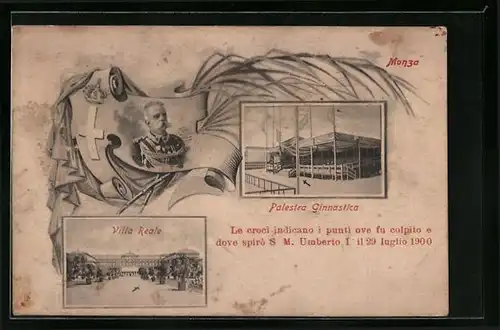 Monza
Palestra Ginnastica
Villa Reale
Le croci indicano i punti ove fu colpito e
dove spirò S. M. Umberto I° il 29 luglio 1900